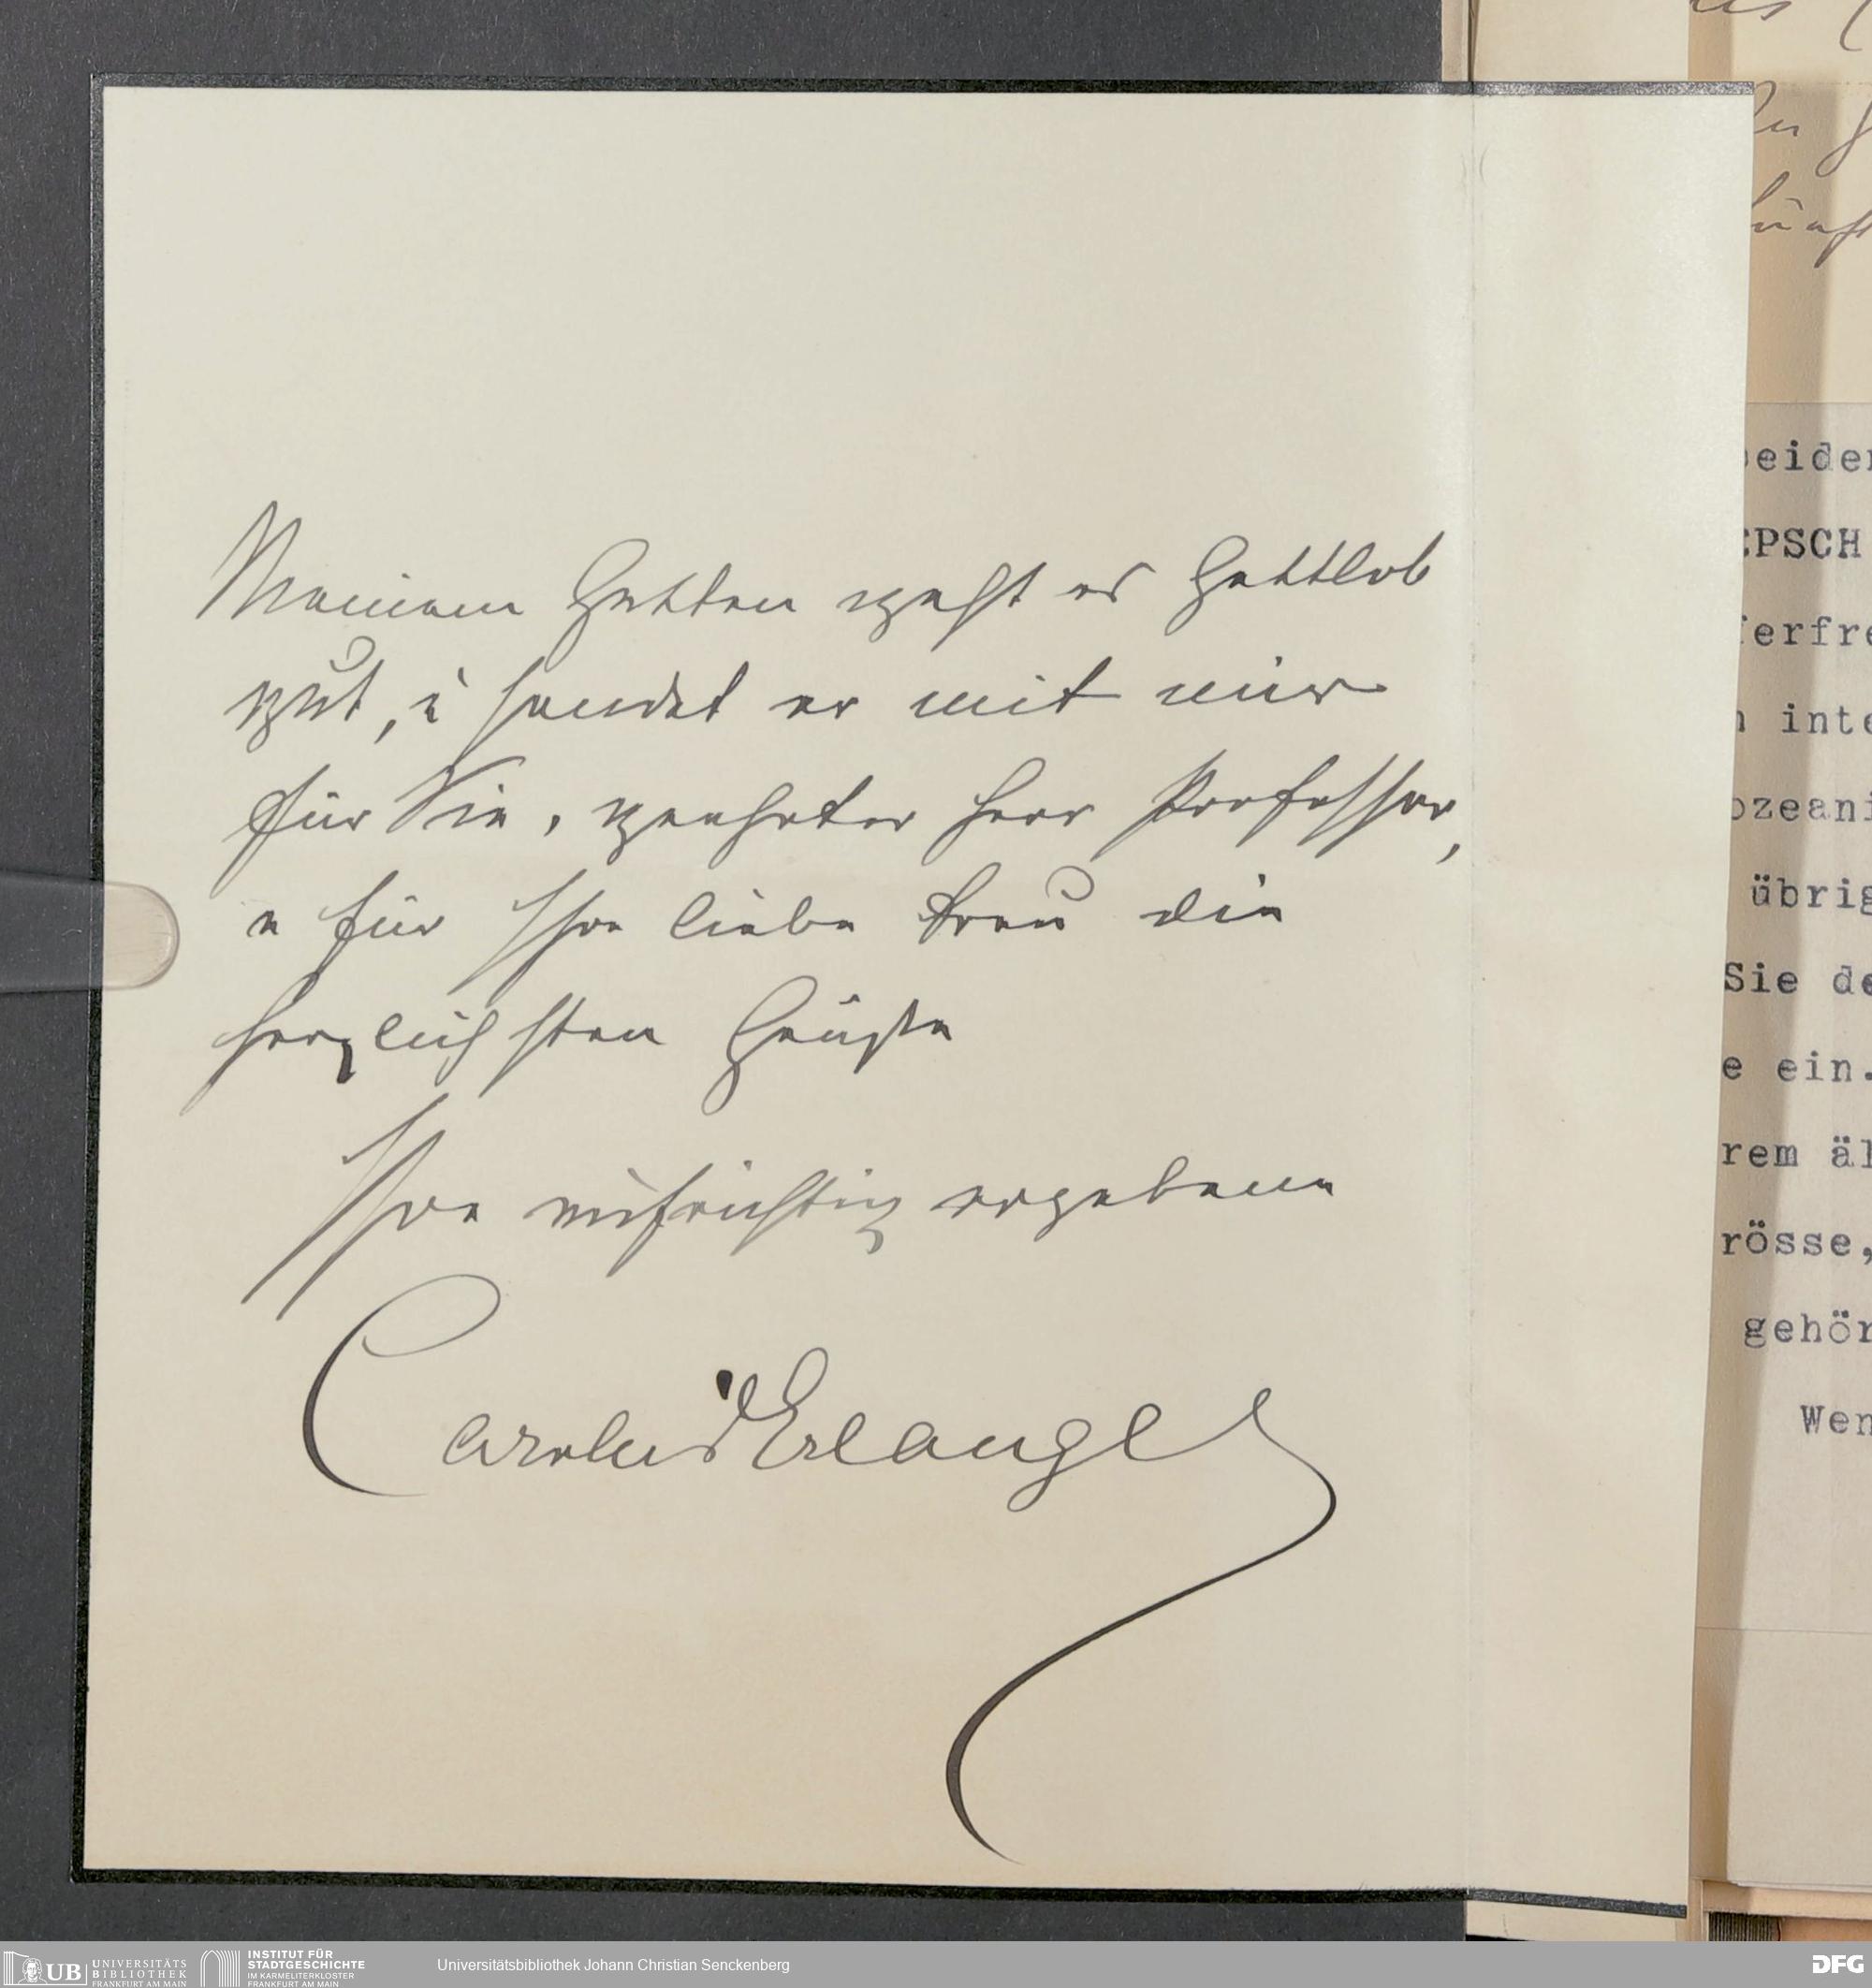 Meinem Gatten geht es Gottlob
gut, u sendet er mit mir
für Sie, geehrter Herr Professor,
u für Ihre liebe Frau die
herzlichsten Grüße
Ihre aufrichtig ergebene
Erlanger
beiden
CPSCH
inte
ozeani
übrig
Sie de
e ein.
rem äl
rösse,
gehör
Wen
UB UNIVERSITÄTS
BIBLIOTHEK
FRANKFURT AM MAIN
INSTITUT FÜR
STADTGESCHICHTE
IM KARMELITERKLOSTER
FRANKFURT AM MAIN
Universitätsbibliothek Johann Christian Senckenberg
DFG